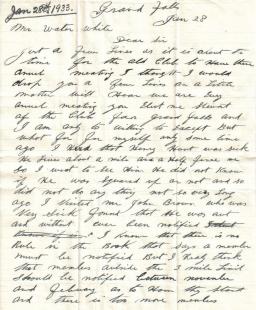 Jan 28th, 1933.
Grand Falls
Jan 28
Mr Water White
Dear Sir
Just a few lines as it is about
time for the old Club to Have there
annuel meating I thought I would
drop you a few lines on a
matter will Hear we are
annuel meating you Elect me
of the Club from Grand falls and
I am only to willing to Except But
what for for myself only some time
ago I Herd that Henry Hunt was sick
He lives about a mile and a Half from me
so I went to see Him He did not know
if He was squared up or not and so
did not do any thing not so very long
ago I visited Mr John Brown who was
very sick found that He was out
and without ever been notified
I know that there is no
Rule in the Book that says a member
must be notified But I Realy think
that members outside the 3 mile limit
should be notified between november
and febuary as to How they stand
and there is Has more member